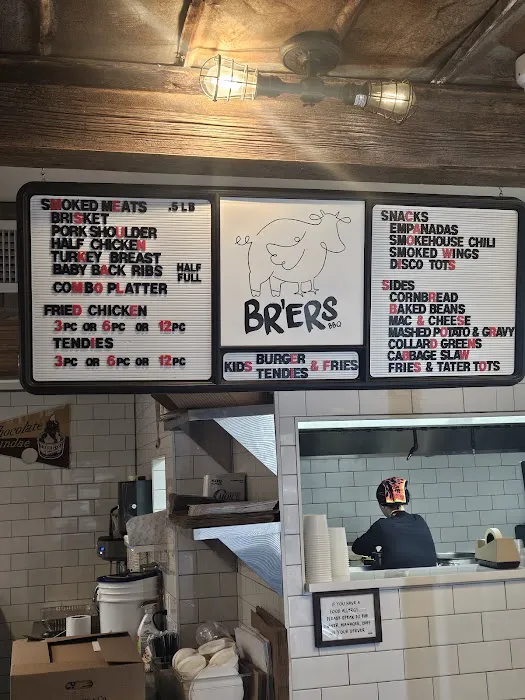 SMOKED MEATS .5 LB
BRISKET
PORK SHOULDER
HALF CHICKEN
TURKEY BREAST
BABY BACK RIBS HALF
FULL
COMBO PLATTER
FRIED CHICKEN
3PC OR 6PC OR 12PC
TENDIES
3PC OR 6PC OR 12PC
BR'ERS
BBQ
KIDS BURGER & FRIES
TENDIES
SNACKS
EMPANADAS
SMOKEHOUSE CHILI
SMOKED WINGS
DISCO TOTS
SIDES
CORNBREAD
BAKED BEANS
MAC & CHEESE
MASHED POTATO & GRAVY
COLLARD GREENS
CABBAGE SLAW
FRIES & TATER TOTS
Chocolate
Sundae
IF YOU HAVE A
FOOD ALLERGY
PLEASE SPEAK TO THE
OWNER, MANAGER, CHEF
OR YOUR SERVER